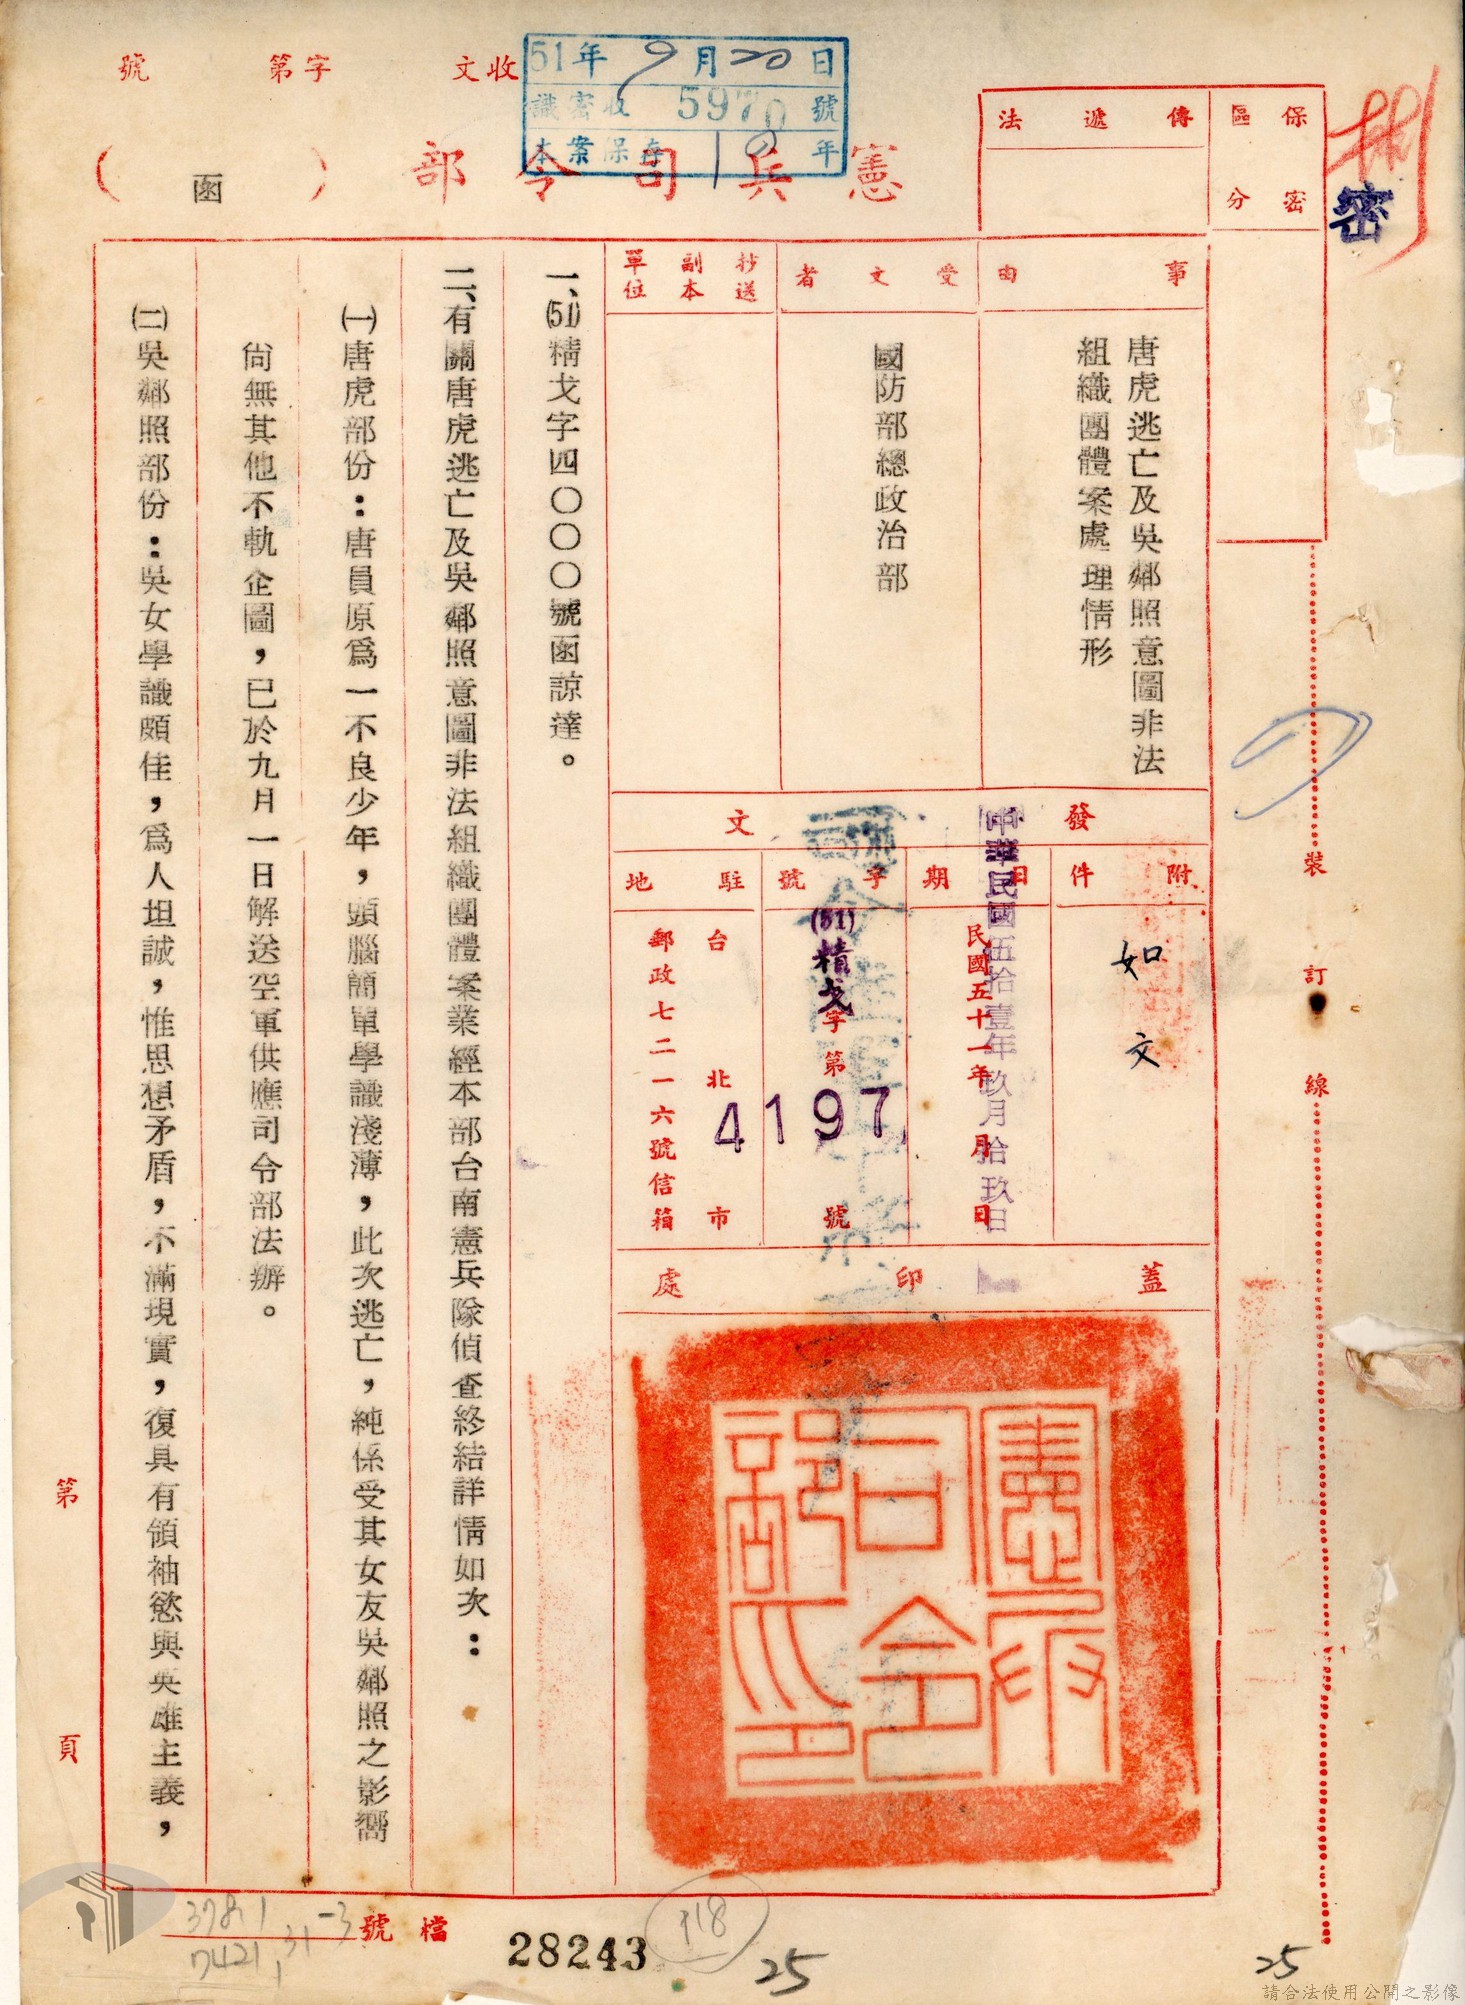 收文　字第　號
51年9月20日
識密收 5970 號
本案保存10年
憲兵司令部（函）
保密區分
傳遞法
密
事由
唐虎逃亡及吳鄰照意圖非法
組織團體案處理情形
受文者
國防部總政治部
抄送副本單位
發文
附件
如文
日期
民國五十一年　月　日
中華民國伍拾壹年玖月拾玖日
字號
(51)精戈字第4197號
駐地
台北市
郵政七二一六號信箱
蓋印處
憲兵司令部印
一、(51)精戈字四〇〇〇號函諒達。
二、有關唐虎逃亡及吳鄰照意圖非法組織團體案業經本部台南憲兵隊偵查終結詳情如次：
㈠唐虎部份：唐員原為一不良少年，頭腦簡單學識淺薄，此次逃亡，純係受其女友吳鄰照之影嚮
尙無其他不軌企圖，已於九月一日解送空軍供應司令部法辦。
㈡吳鄰照部份：吳女學識頗佳，為人坦誠，惟思想矛盾，不滿現實，復具有領袖慾與英雄主義，
裝
訂
線
第　頁
檔號
3781
7421,31-3
28243
118
25
25
請合法使用公開之影像